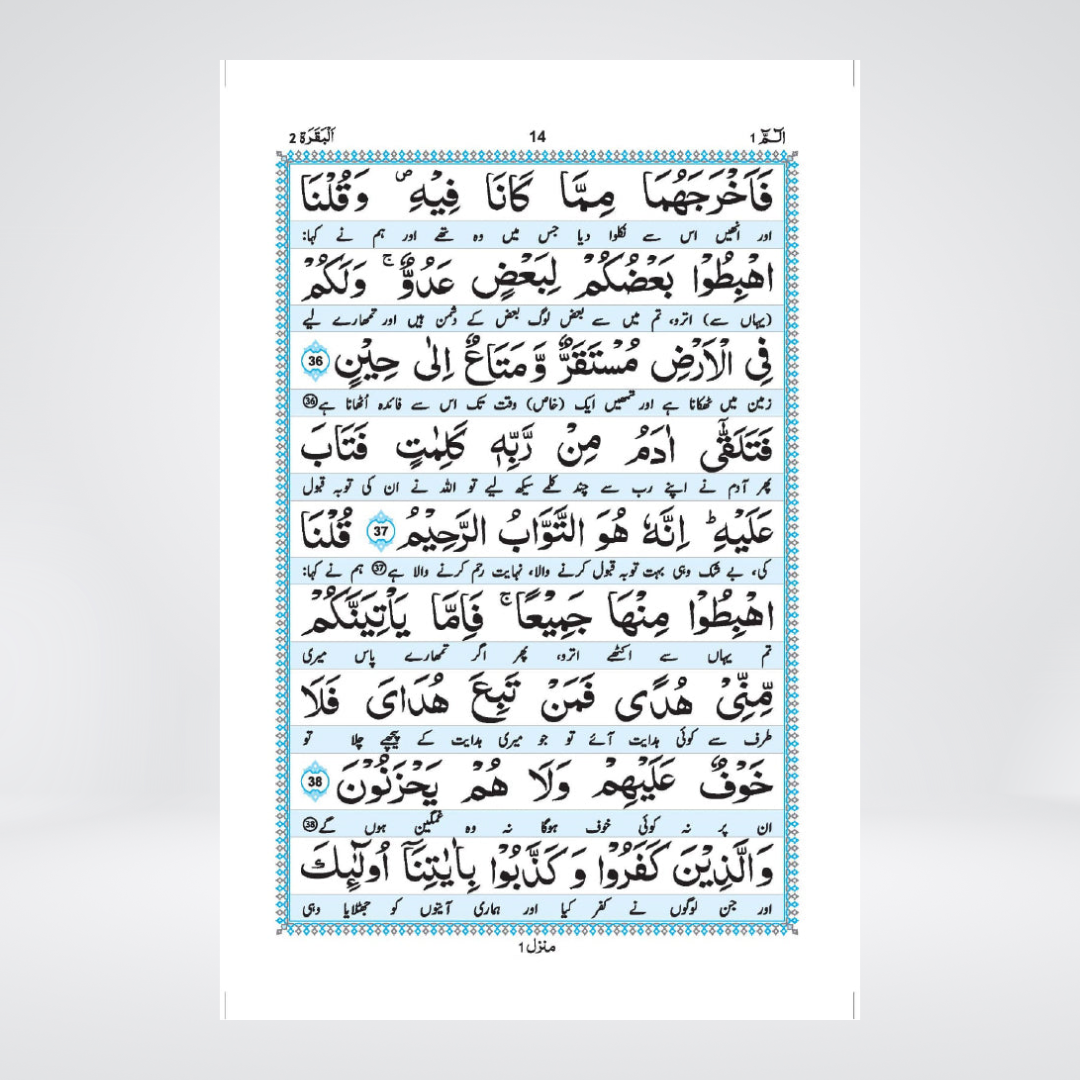 الٓـمّٓ 1 14 اَلْبَقَرَة 2
فَاَخْرَجَهُمَا مِمَّا كَانَا فِيْهِ ۪ وَقُلْنَا
اور انھیں اس سے نکلوا دیا جس میں وہ تھے اور ہم نے کہا:
اهْبِطُوْا بَعْضُكُمْ لِبَعْضٍ عَدُوٌّ ۚ وَلَكُمْ
(یہاں سے) اترو، تم میں سے بعض لوگ بعض کے دشمن ہیں اور تمھارے لیے
فِي الْاَرْضِ مُسْتَقَرٌّ وَّمَتَاعٌ اِلٰى حِيْنٍ 36
زمین میں ٹھکانا ہے اور تمھیں ایک (خاص) وقت تک اس سے فائدہ اُٹھانا ہے 36
فَتَلَقّٰٓى اٰدَمُ مِنْ رَّبِّهٖ كَلِمٰتٍ فَتَابَ
پھر آدم نے اپنے رب سے چند کلمے سیکھ لیے تو اللہ نے ان کی توبہ قبول
عَلَيْهِ ؕ اِنَّهٗ هُوَ التَّوَّابُ الرَّحِيْمُ 37 قُلْنَا
کی، بے شک وہی بہت توبہ قبول کرنے والا، نہایت رحم کرنے والا ہے 37 ہم نے کہا:
اهْبِطُوْا مِنْهَا جَمِيْعًا ۚ فَاِمَّا يَاْتِيَنَّكُمْ
تم یہاں سے اکٹھے اترو، پھر اگر تمھارے پاس میری
مِّنِّيْ هُدًى فَمَنْ تَبِعَ هُدَايَ فَلَا
طرف سے کوئی ہدایت آئے تو جو میری ہدایت کے پیچھے چلا تو
خَوْفٌ عَلَيْهِمْ وَلَا هُمْ يَحْزَنُوْنَ 38
ان پر نہ کوئی خوف ہوگا نہ وہ غمگین ہوں گے 38
وَالَّذِيْنَ كَفَرُوْا وَكَذَّبُوْا بِاٰيٰتِنَآ اُولٰٓئِكَ
اور جن لوگوں نے کفر کیا اور ہماری آیتوں کو جھٹلایا وہی
منزل 1